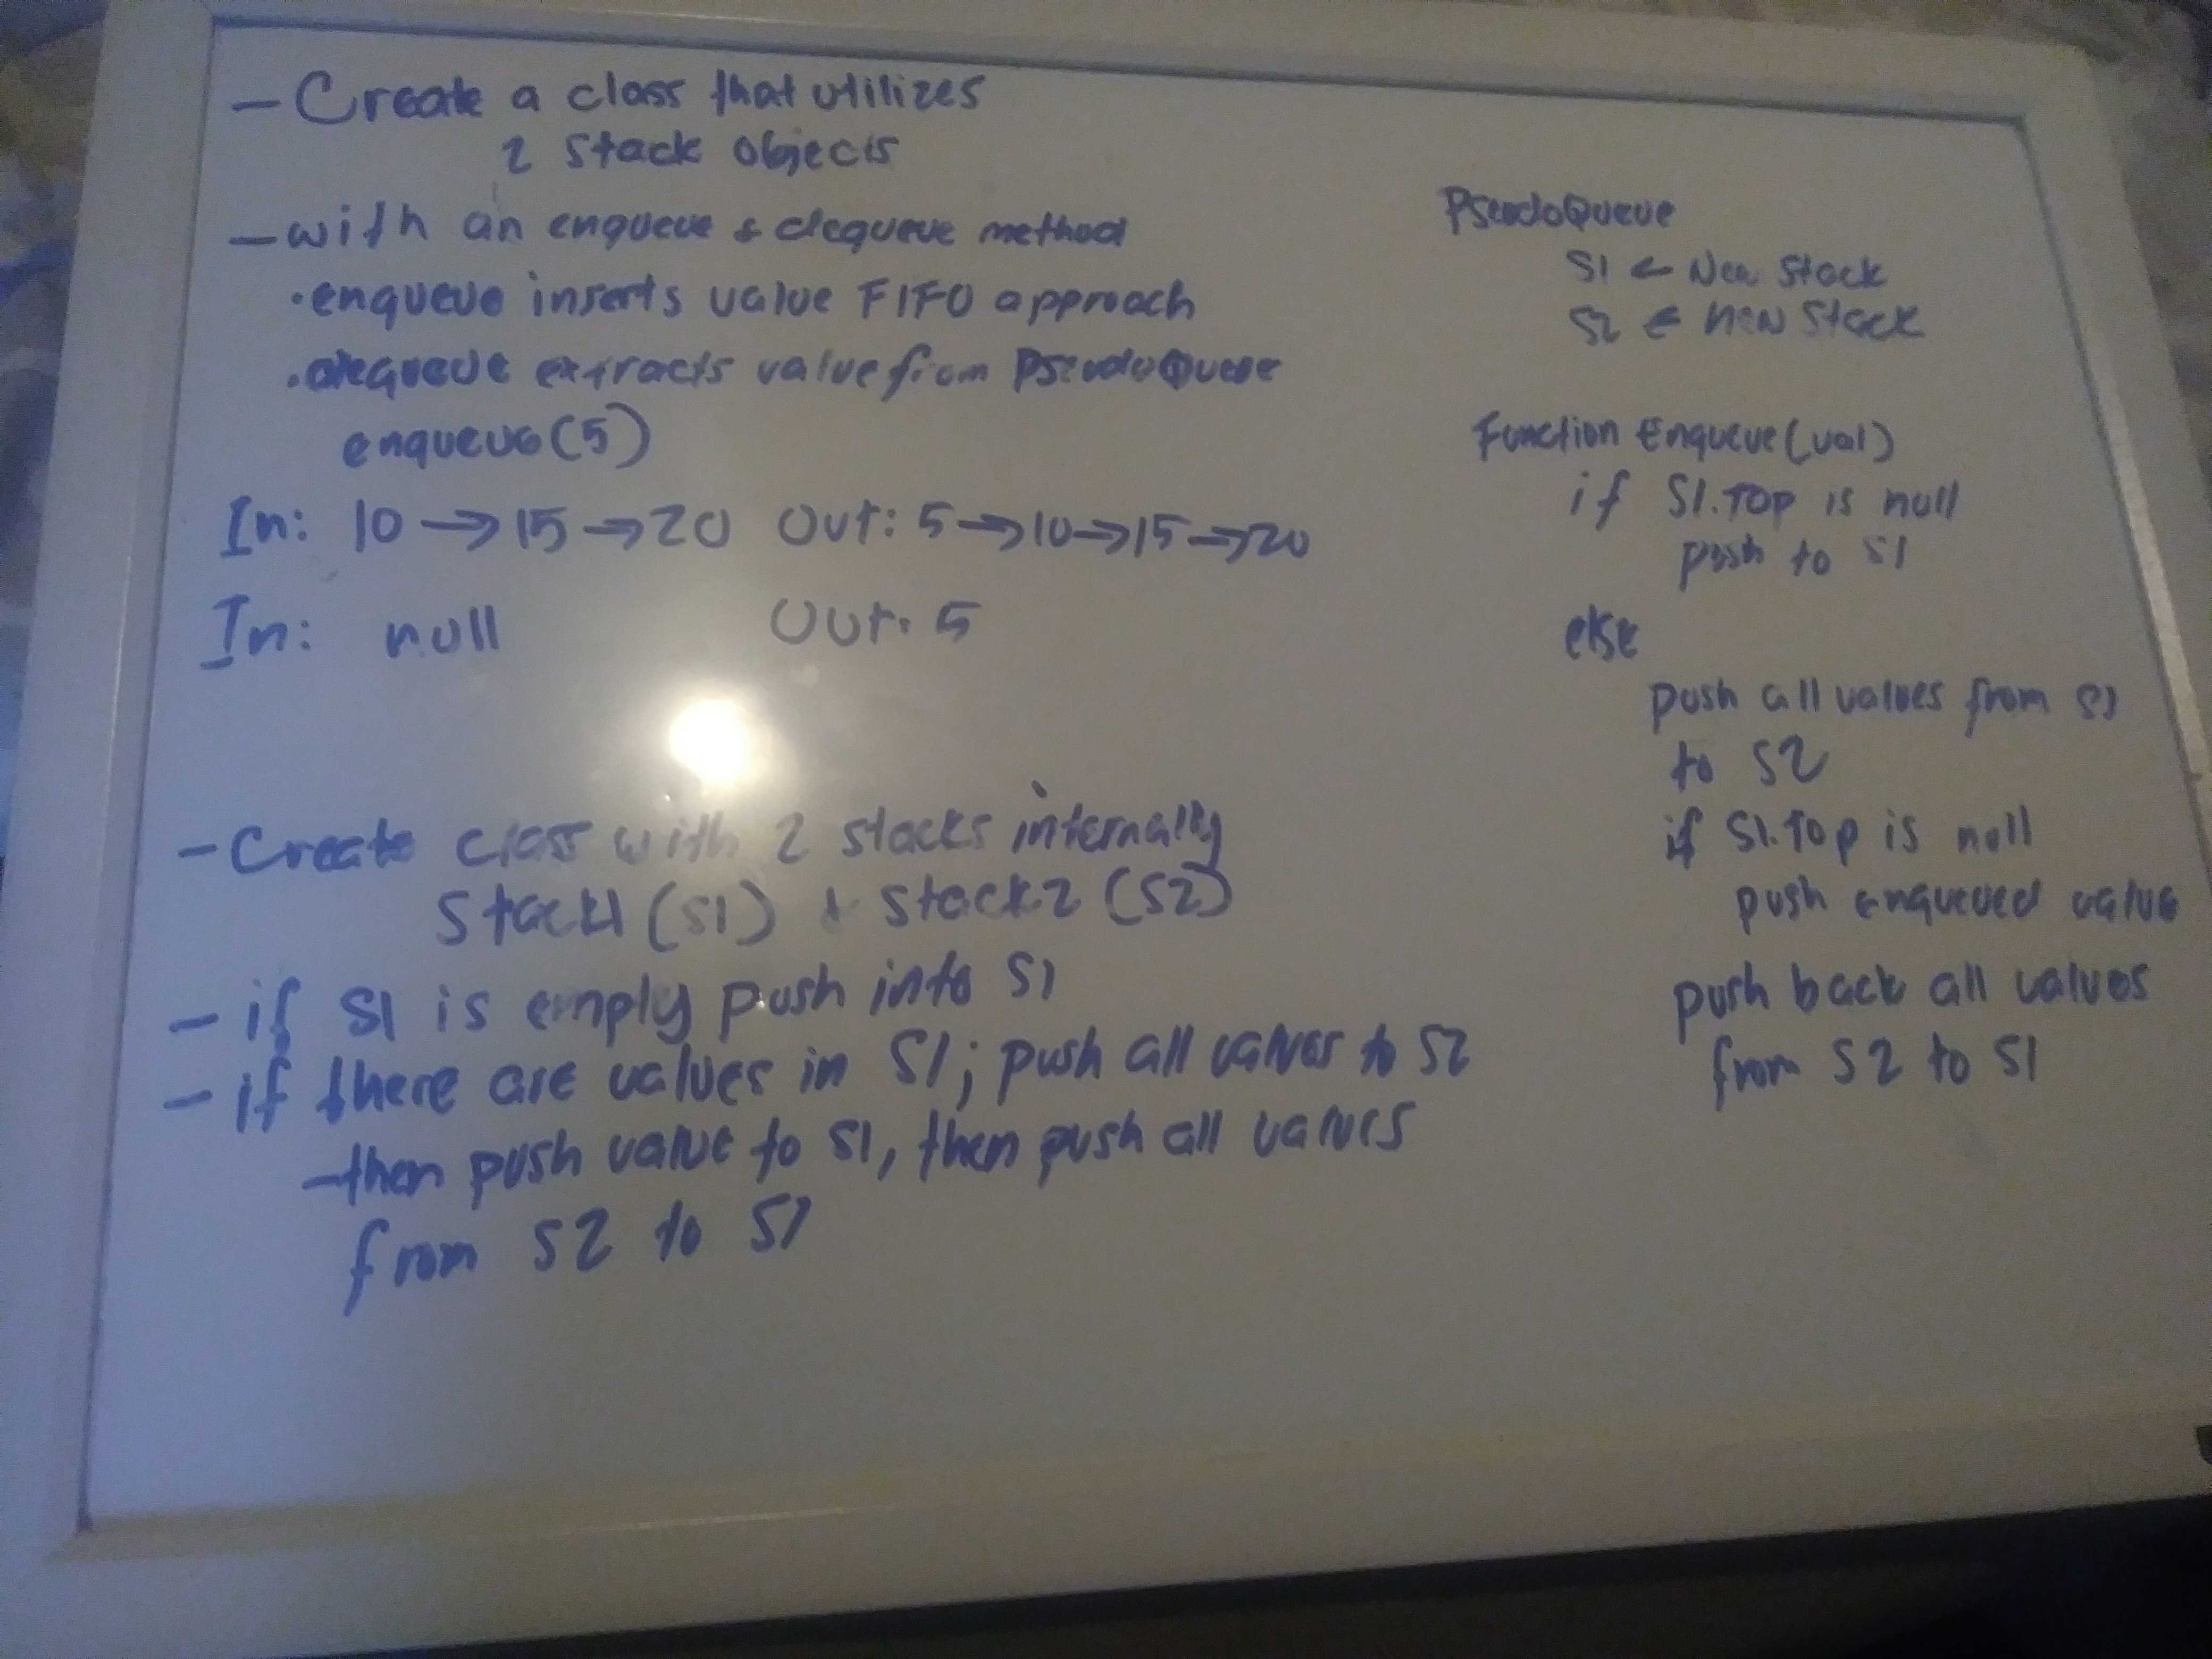 - Create a class that utilizes
2 Stack Objects
- with an enqueue & dequeue method
• enqueue inserts value FIFO approach
• dequeue extracts value from PseudoQueue
enqueue(5)
In: 10 → 15 → 20 Out: 5 → 10 → 15 → 20
In: null Out: 5
- Create class with 2 stacks internally
Stack1 (S1) & Stack2 (S2)
- if S1 is empty push into S1
- if there are values in S1; push all values to S2
- then push value to S1, then push all values
from S2 to S1
PseudoQueue
S1 ← New Stack
S2 ← New Stack
Function Enqueue(val)
if S1.Top is null
push to S1
else
push all values from S1
to S2
if S1.Top is null
push enqueued value
push back all values
from S2 to S1